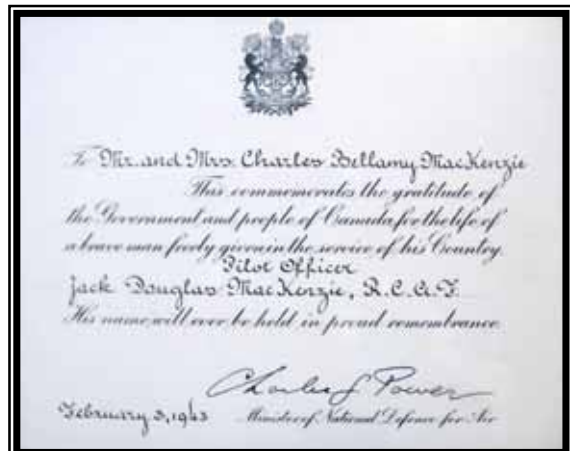 To Mr. and Mrs. Charles Bellamy MacKenzie
This commemorates the gratitude of
the Government and people of Canada for the life of
a brave man freely given in the service of his Country.
Pilot Officer
Jack Douglas MacKenzie, R.C.A.F.
His name will ever be held in proud remembrance.
Charles G Power
February 3, 1943 Minister of National Defence for Air